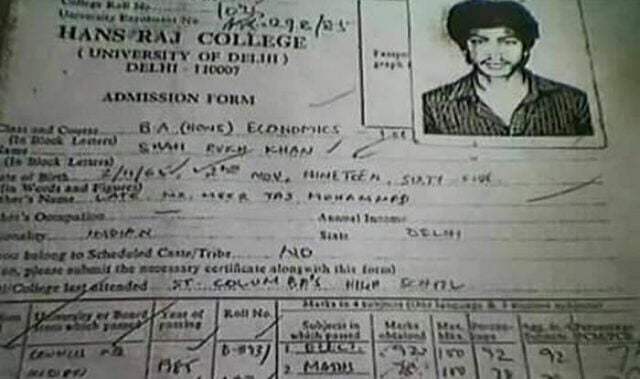 College Roll No. 1032
University Enrolment No. AR.292/85
HANS RAJ COLLEGE
(UNIVERSITY OF DELHI)
DELHI - 110007
ADMISSION FORM
Class and Course B.A (HONS) ECONOMICS
(In Block Letters)
Name SHAH RUKH KHAN
(In Block Letters)
Date of Birth 2/11/65 2nd NOV. NINETEEN SIXTY FIVE
(in Words and Figures)
Father's Name LATE MR. MEER TAJ MOHAMMAD
Father's Occupation — Annual Income
Nationality INDIAN State DELHI
you belong to Scheduled Caste/Tribe NO
so, please submit the necessary certificate alongwith this form)
College last attended ST. COLUMBA'S HIGH SCHOOL
Marks in 4 subjects (One language & 3 subjects)
University or Board from which passed Year of passing Roll No. Subjects in which passed Marks obtained Max.
COUNCIL 1985 1. ELECT. 92 100 92 92
INDIAN 2. MATHS 78 100 78